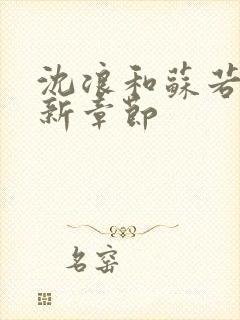 沈浪和蘇若
新章節
名窑